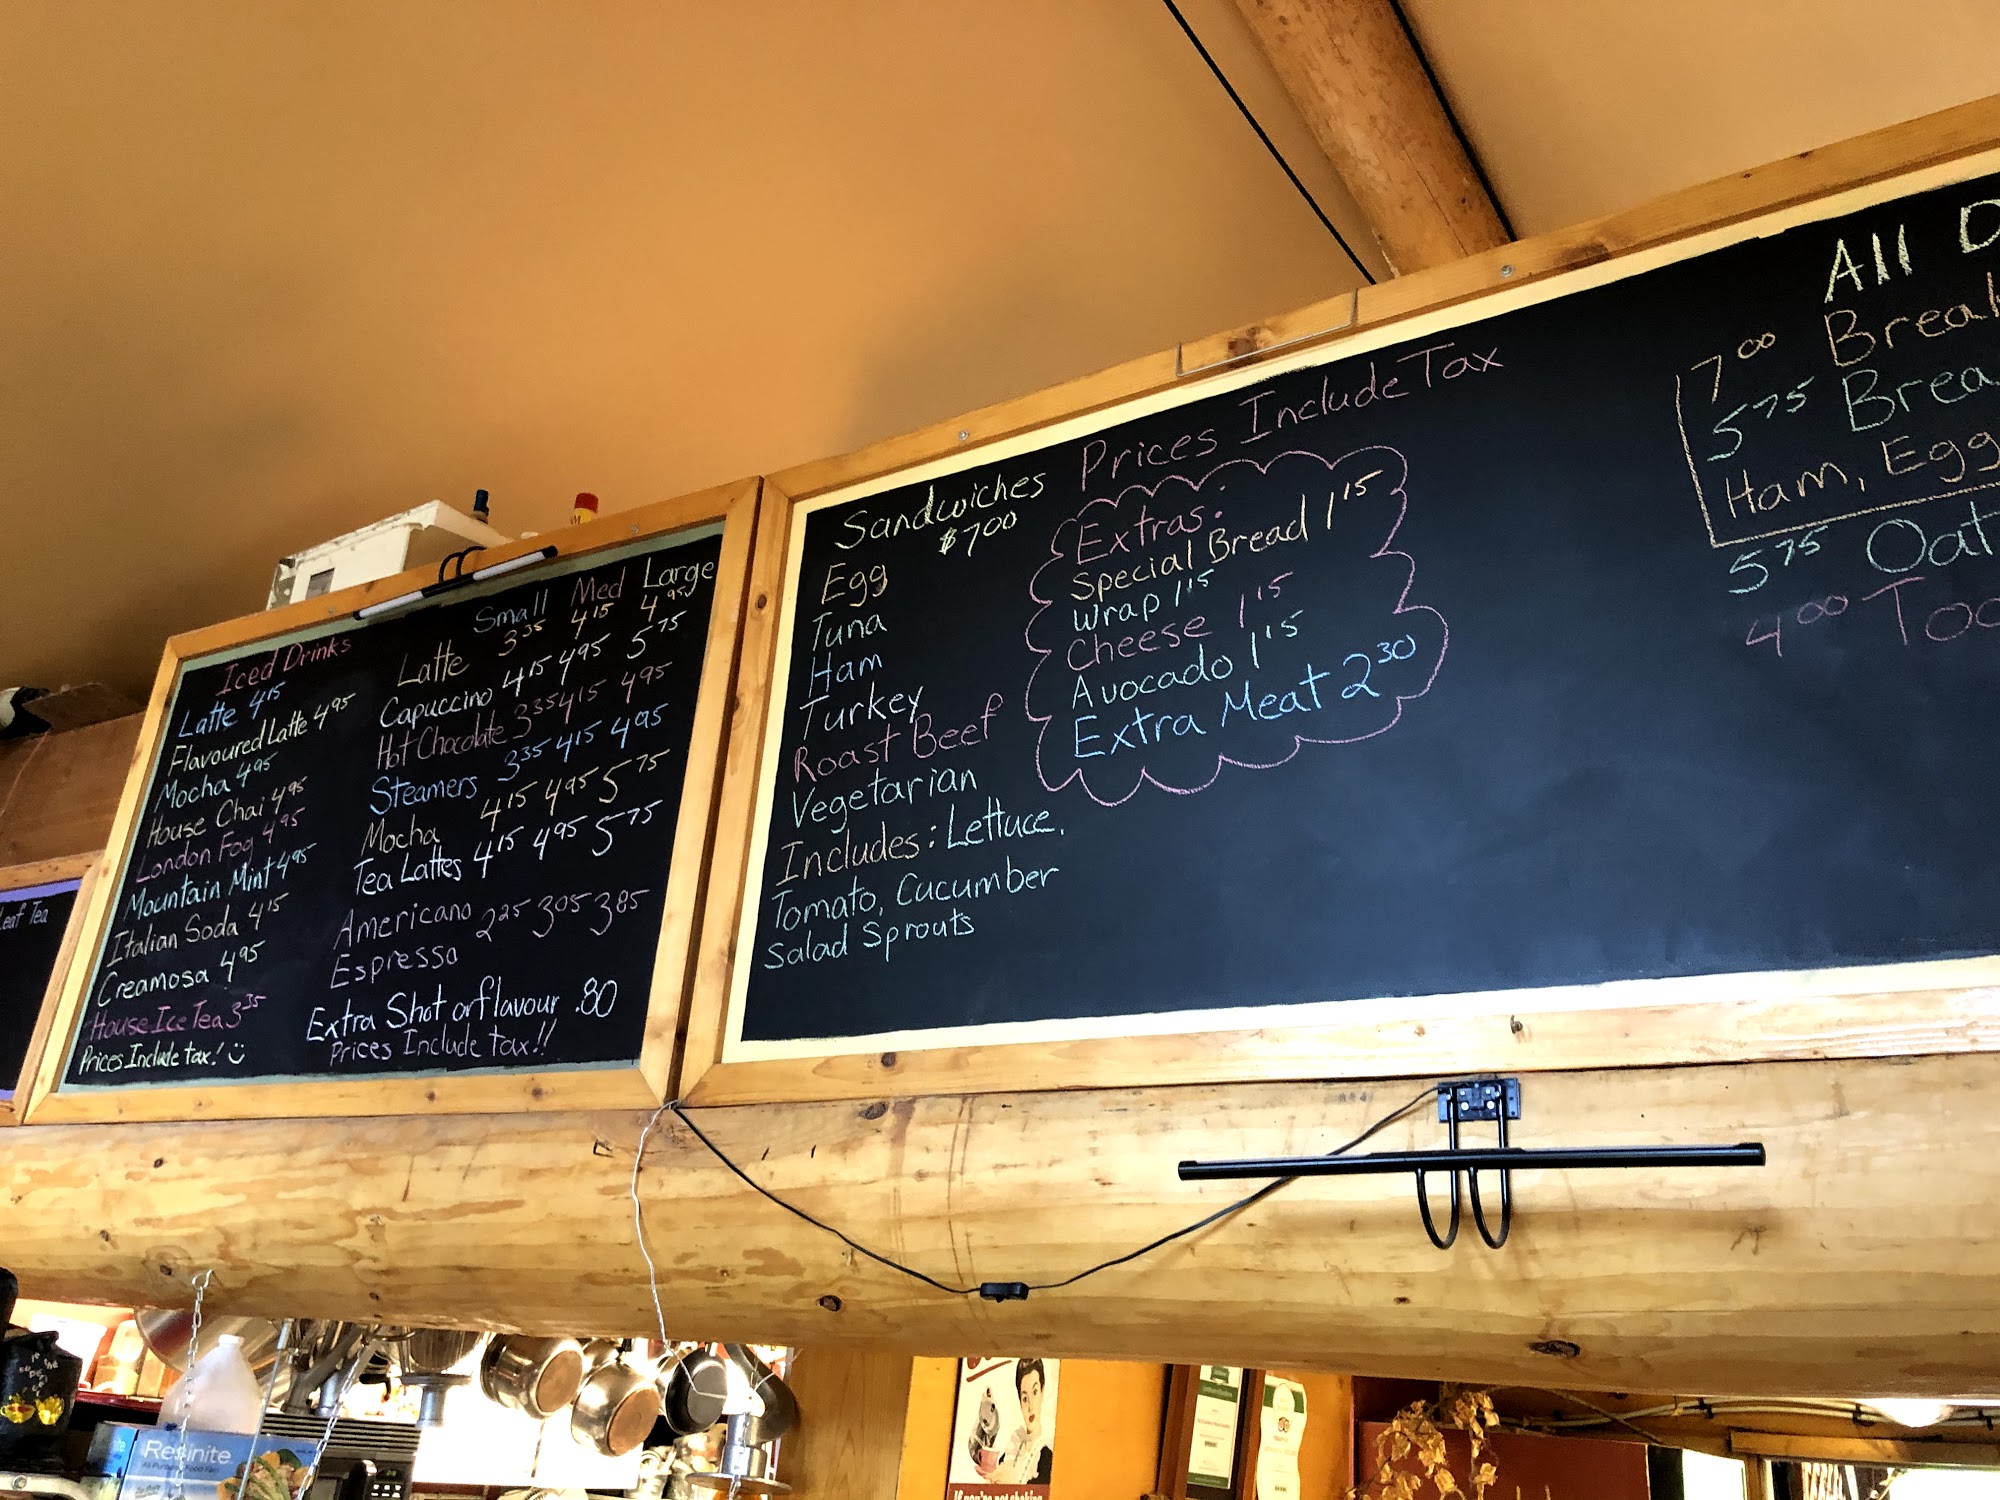 Leaf Tea
Iced Drinks
Latte 4.15
Flavoured Latte 4.95
Mocha 4.95
House Chai 4.95
London Fog 4.95
Mountain Mint 4.95
Italian Soda 4.15
Creamosa 4.95
House Ice Tea 3.35
Prices Include tax!
Small Med Large
Latte 3.35 4.15 4.95
Capuccino 4.15 4.95 5.75
Hot Chocolate 3.35 4.15 4.95
Steamers 3.35 4.15 4.95
Mocha 4.15 4.95 5.75
Tea Lattes 4.15 4.95 5.75
Americano 2.25 3.05 3.85
Espresso
Extra Shot or flavour .80
Prices Include tax!!
Sandwiches
$7.00
Egg
Tuna
Ham
Turkey
Roast Beef
Vegetarian
Includes: Lettuce,
Tomato, Cucumber
Salad Sprouts
Prices Include Tax
Extras:
Special Bread 1.15
Wrap 1.15
Cheese 1.15
Avocado 1.15
Extra Meat 2.30
All D
7.00 Break
5.75 Brea
Ham, Egg
5.75 Oat
4.00 Toa
Resinite